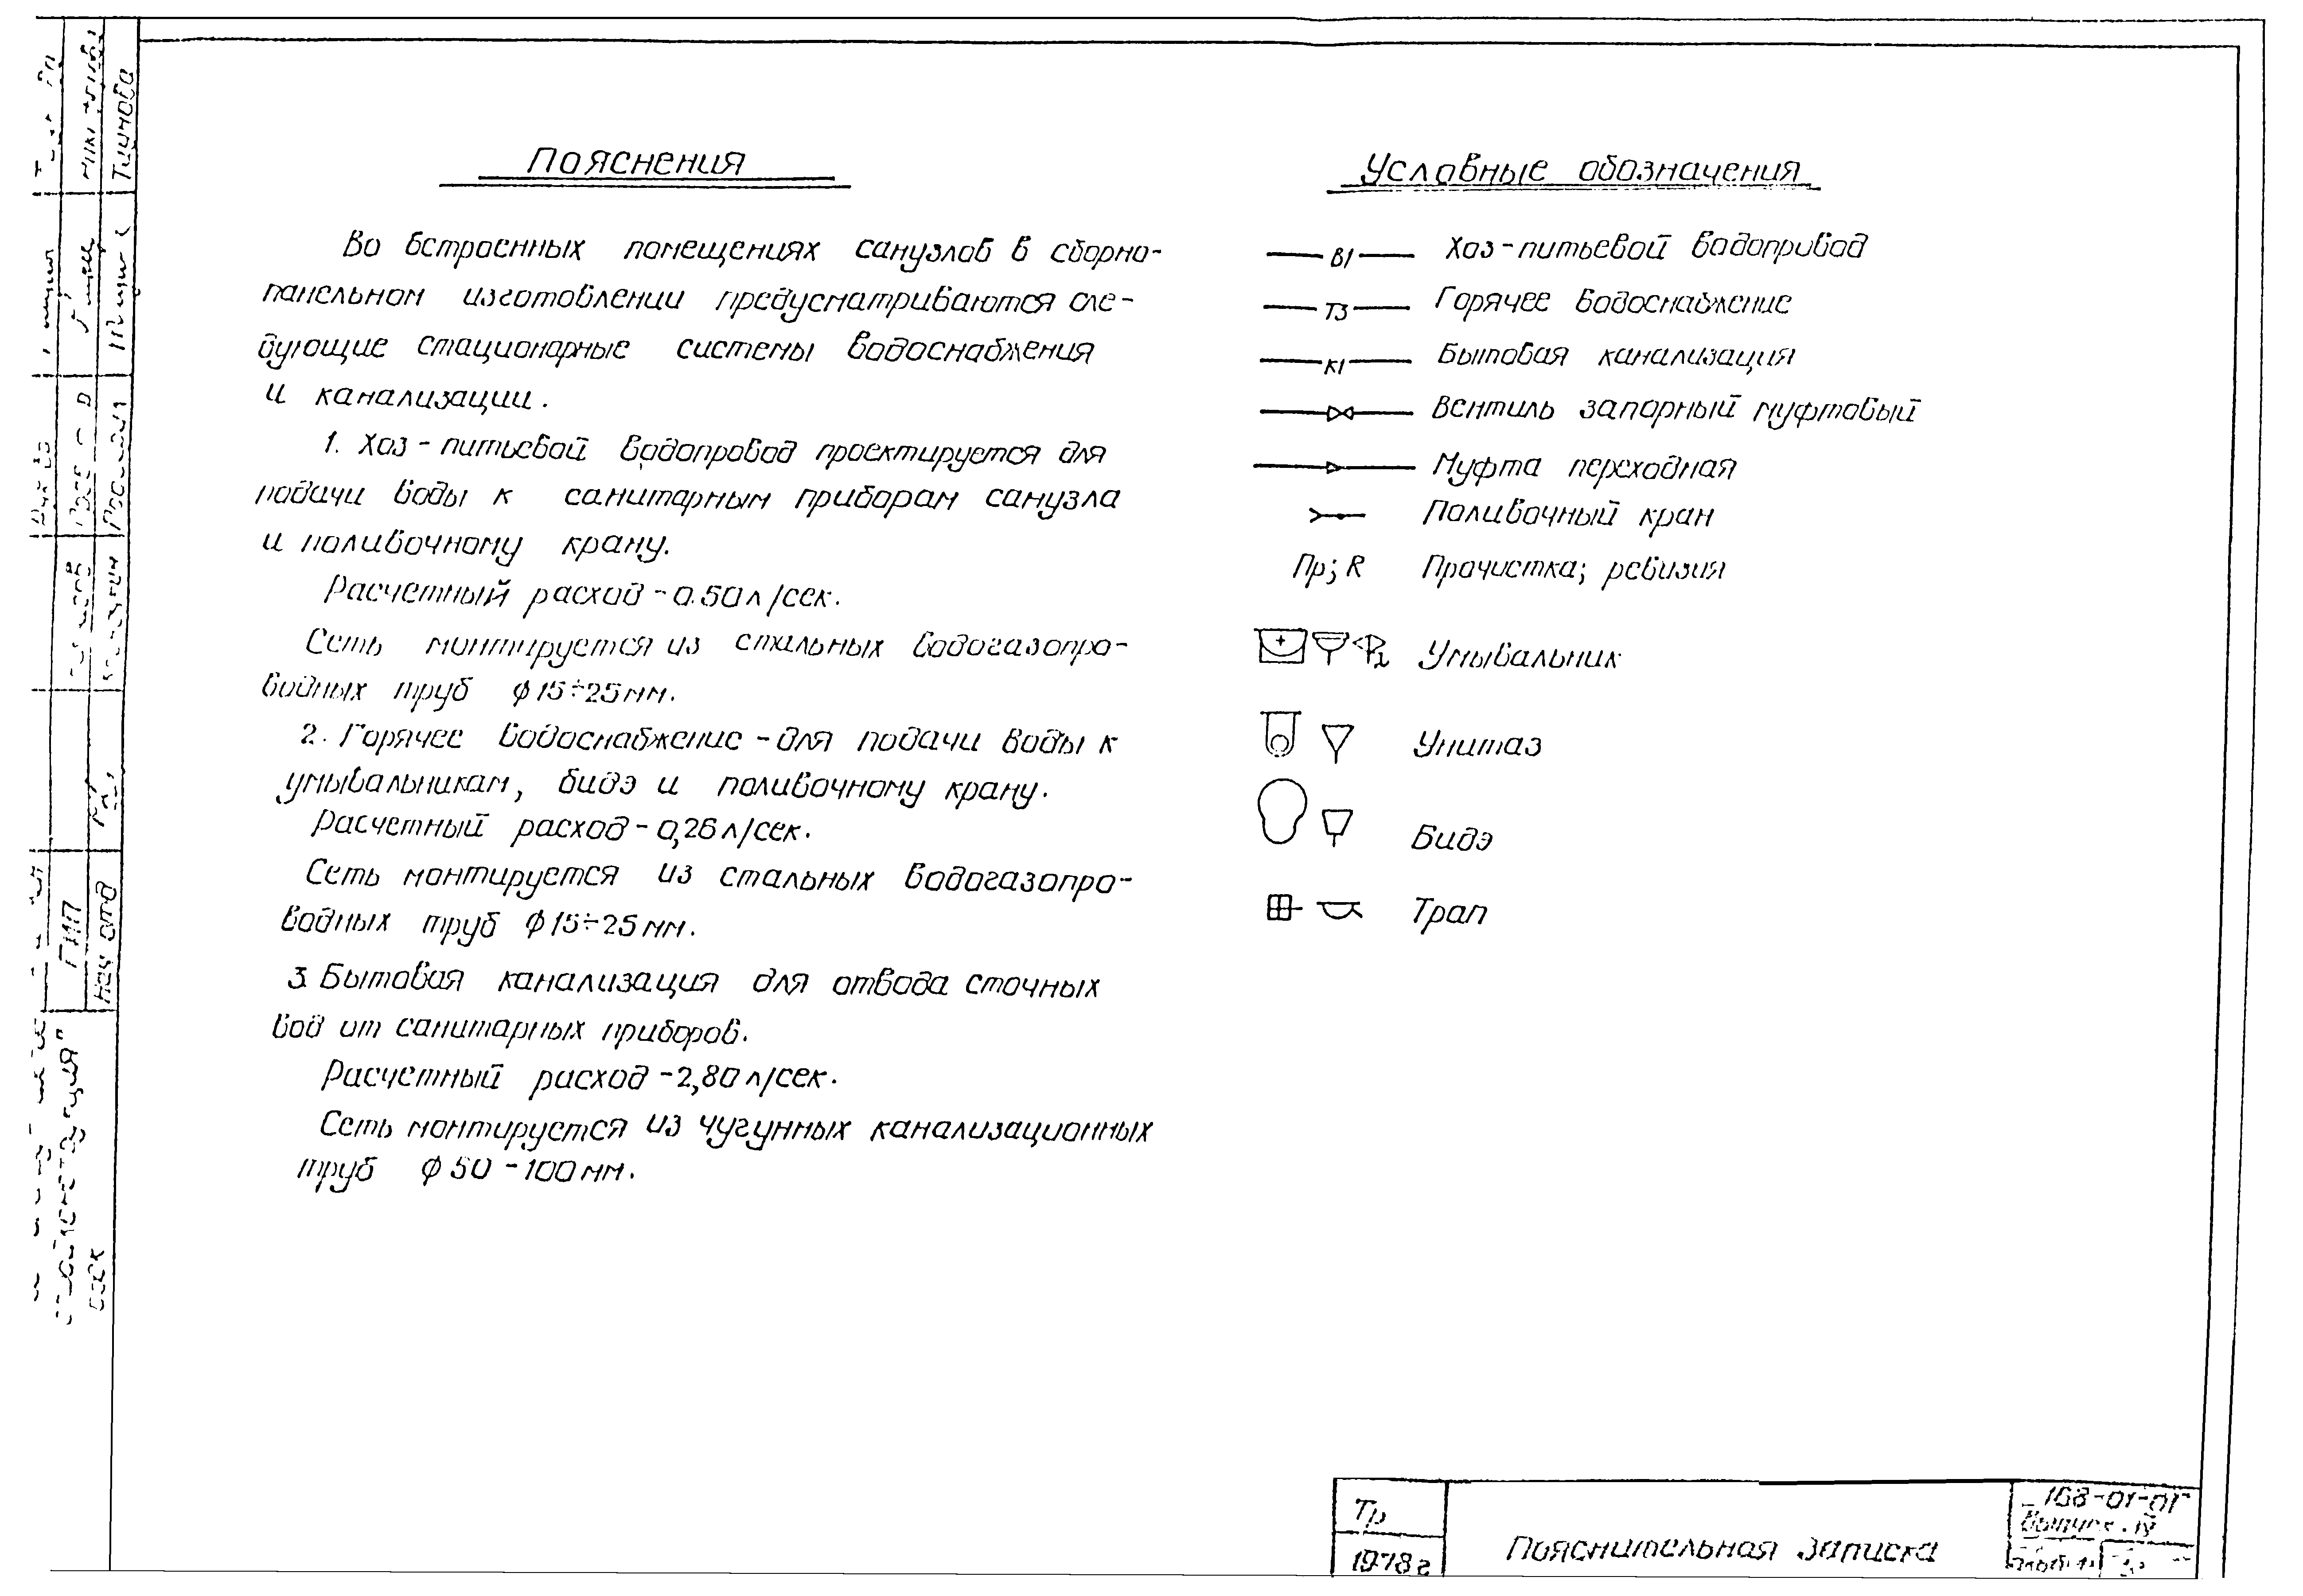 Пояснения
Во встроенных помещениях санузлов в сборно-
панельном изготовлении предусматриваются сле-
дующие стационарные системы водоснабжения
и канализации.
1. Хоз-питьевой водопровод проектируется для
подачи воды к санитарным приборам санузла
и поливочному крану.
Расчетный расход - 0.50 л/сек.
Сеть монтируется из стальных водогазопро-
водных труб ф 15÷25 мм.
2. Горячее водоснабжение - для подачи воды к
умывальникам, бидэ и поливочному крану.
Расчетный расход - 0,26 л/сек.
Сеть монтируется из стальных водогазопро-
водных труб ф 15÷25 мм.
3. Бытовая канализация для отвода сточных
вод от санитарных приборов.
Расчетный расход - 2,80 л/сек.
Сеть монтируется из чугунных канализационных
труб ф 50 - 100 мм.
Условные обозначения
В1 Хоз-питьевой водопровод
Т3 Горячее водоснабжение
К1 Бытовая канализация
Вентиль запорный муфтовый
Муфта переходная
Поливочный кран
Пр; R Прочистка; ревизия
Умывальник
Унитаз
Бидэ
Трап
Тр
1978г
Пояснительная записка
168-01-01
Выпуск IV
ГИП
Нач отд